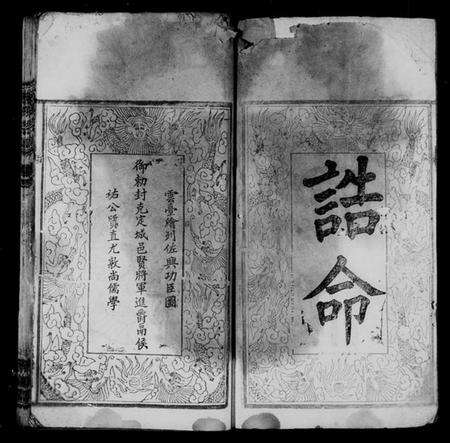 誥命
雲臺繪列佐興功臣圖
御勅封克定城邑賢將軍進爵鬲侯
祐公質直尤敬尚儒學